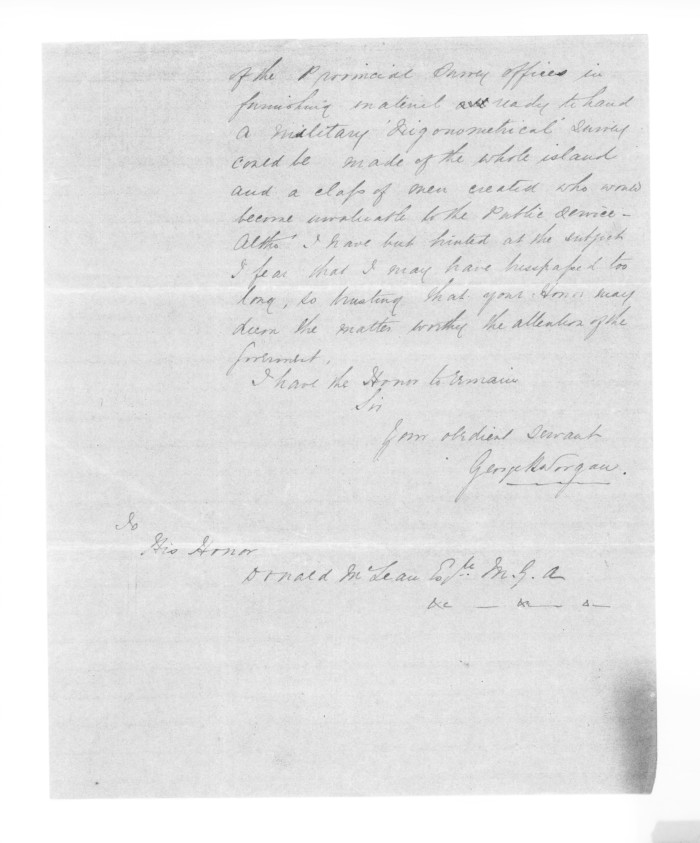 of the Provincial Survey offices in
furnishing material all ready to hand
a military 'Trigonometrical' Survey
could be made of the whole island
and a class of men created who would
become invaluable to the Public Service -
Altho' I have but hinted at the subject
I fear that I may have trespassed too
long, so trusting that your Honor may
deem the matter worthy the attention of the
Goverment.
I have the Honor to remain
Sir
Your obedient Servant
George
To
His Honor
Donald McLean Esqre M.G.A
&c — &c — &c —